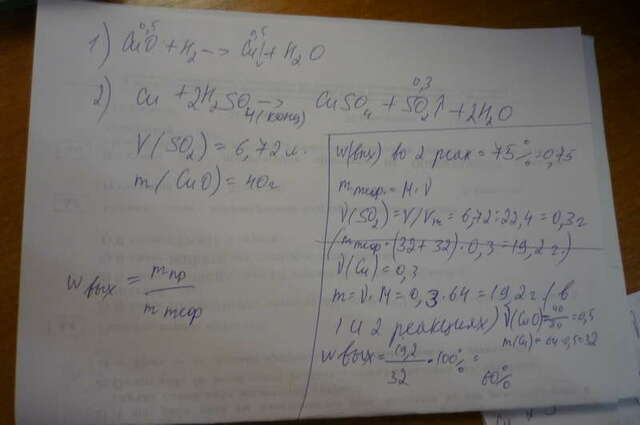 0,5 0,5
1) CuO + H₂ → Cu↓ + H₂O
0,3
2) Cu + 2H₂SO₄(конц) → CuSO₄ + SO₂↑ + 2H₂O
V(SO₂) = 6,72 л.
m(CuO) = 40 г
W вых = m пр / m теор
W(вых) во 2 реак = 75% = 0,75
m теор. = M · ν
ν(SO₂) = V/Vm = 6,72 : 22,4 = 0,3 г
(m теор = (32+32) · 0,3 = 19,2 г.)
ν(Cu) = 0,3
m = ν · M = 0,3 · 64 = 19,2 г (в
1 и 2 реакциях) ν(CuO) = 40/80 = 0,5
m(Cu) = 64 · 0,5 = 32
W вых = 19,2/32 · 100% =
60%